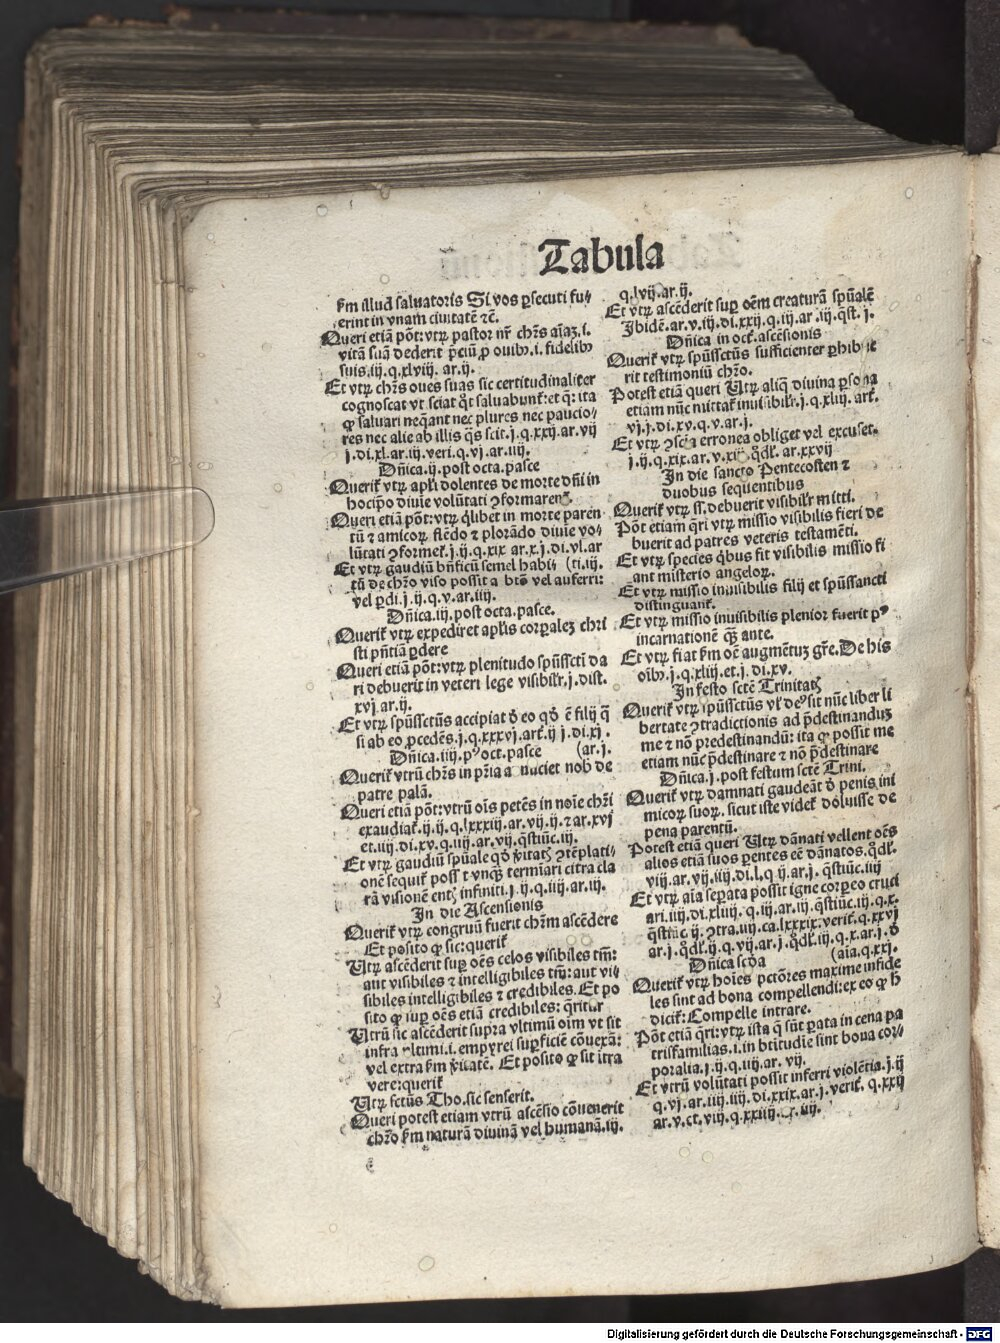 Tabula
ẜm illud saluatoris Si vos ꝑsecuti fu⸗
erint in vnam ciuitatē ⁊č.
Queri etiā pōt: vtꝝ pastor nr̄ chr̄s aīaꝫ .i.
vitā suā dederit p̄ciū ꝓ ouibꝰ .i. fidelibꝰ
suis .iij. q. xlviij. ar. ij.
Et vtꝝ chr̄s oues suas sic certitudinaliter
cognoscat vt sciat q̄t saluabunt̄: et q̄: ita
ꝙ saluari neq̄ant nec plures nec paucio⸗
res nec alie ab illis q̄s scit. j. q. xxij. ar. vij
j. di. xl. ar. iij. veri. q. vj. ar. iiij.
Dn̄ica .ij. post octa. pasce
Querit̄ vtꝝ apl̄i dolentes de morte dn̄i in
hoc ip̄o diuīe volūtati ꝯformarent̄.
Queri etiā pōt: vtꝝ q̄libet in morte paren
tū ⁊ amicoꝝ flēdo ⁊ plorādo diuīe vo⸗
lūtati ꝯformet̄. j. ij. q. xix ar. x. j. di. vl. ar
Et vtꝝ gaudiū bn̄ficiū semel habi⸗ (ti. iij.
tū de chr̄o viso possit a btō vel auferri:
vel ꝑdi. j. ij. q. v. ar. iiij.
Dn̄ica .iij. post octa. pasce.
Querit̄ vtꝝ expediret apl̄is corꝑaleꝫ chri
sti pn̄tiā ꝑdere
Queri etiā pōt: vtꝝ plenitudo spūssctī da
ri debuerit in veteri lege visibilr̄. j. dist.
xvj ar. ij.
Et vtꝝ spūssctūs accipiat ꝺ̄ eo qꝺ̄ ē filij q̄
si ab eo ꝓcedēs. j. q. xxxvj. art̄. ij j. di. xj.
Dn̄ica .iiij. pꝰ oct. pasce (ar. j.
Querit̄ vtrū chr̄s in pr̄ia annuciet nob̄ de
patre palā.
Queri etiā pōt: vtrū oīs petēs in noīe chr̄i
exaudiat̄. ij. ij. q. lxxxiij. ar. vij. ij. ⁊ ar. xvj
et. iiij. di. xv. q. iiij. ar. vij. q̄stiūc. iij.
Et vtꝝ gaudiū spūale qꝺ̄ v̄itatꝭ ꝯtēplati⸗
onē sequit̄ possit vnq̄ꝫ termīari citra cla
rā visionē entꝭ infiniti. j. ij. q. iiij. ar. iij.
In die Ascensionis
Querit̄ vtꝝ congruū fuerit chr̄m ascēdere
Et posito ꝙ sic: querit̄
Vtꝝ ascēderit suꝑ oēs celos visibiles tm̄:
aut visibiles ⁊ intelligibiles tm̄: aut vi⸗
sibiles intelligibiles ⁊ credibiles. Et po
sito ꝙ suꝑ oēs etiā credibiles: q̄ritur
Vtrū sic ascēderit supra vltimū oīm vt sit
infra vltimi .i. empyrei suꝑficiē cōuexā:
vel extra ẜm v̄itatē. Et posito ꝙ sit itra
vere: querit̄
Vtꝝ sctūs Tho. sic senserit.
Queri potest etiam vtrū ascēsio cōuenerit
chr̄o ẜm naturā diuinā vel humanā. iij.
q. lvij. ar. ij.
Et vtꝝ ascēderit suꝑ oēm creaturā spūalē
Ibidē. ar. v. iij. di. xxij. q. iij. ar. iij. q̄st. j.
Dn̄ica in oct̄. ascēsionis
Querit̄ vtꝝ spūssctūs sufficienter ꝑhibue
rit testimoniū chr̄o.
Potest etiā queri Vtꝝ aliq̄ diuina ꝑsona
etiam nūc mittat̄ inuisibilr̄. j. q. xliij. art̄.
vj. j. di. xv. q. v. ar. j.
Et vtꝝ ꝯscīa erronea obliget vel excuset.
j. ij. q. xix. ar. v. xij. q̄dl̄. ar. xxvij
In die sancto Pentecosten ⁊
duobus sequentibus
Querit̄ vtꝝ ss. debuerit visibilr̄ mitti.
Pōt etiam q̄ri vtꝝ missio visibilis fieri de
buerit ad patres veteris testamēti.
Et vtꝝ species q̄bus fit visibilis missio fi
ant misterio angeloꝝ.
Et vtꝝ missio inuisibilis filij et spūssancti
distinguant̄.
Et vtꝝ missio inuisibilis plenior fuerit pꝰ
incarnationē q̄ꝫ ante.
Et vtꝝ fiat ẜm oē augmētuꝫ gr̄e. De his
oībꝰ. j. q. xliij. et. j. di. xv.
In festo sctē Trinitatꝭ
Querit̄ vtꝝ spūssctūs vl̓ deꝰ sit nūc liber li
bertate ꝯtradictionis ad p̄destinanduꝫ
me ⁊ nō predestinandū: ita ꝙ possit me
etiam nūc p̄destinare ⁊ nō p̄destinare
Dn̄ica .j. post festum sctē Trini.
Querit̄ vtꝝ damnati gaudeāt ꝺ̄ penis ini
micoꝝ suoꝝ. sicut iste videt̄ doluisse de
pena parentū.
Potest etiā queri Vtꝝ dānati vellent oēs
alios etiā suos ꝑentes eē dānatos. q̄dl̄.
viij. ar. vij. iiij. di. l. q ij. ar. j. q̄stiūc. iiij
Et vtꝝ aīa seꝑata possit igne corꝑeo cruci
ari. iiij. di. xliiij. q. iij. ar. iij. q̄stiūc. iij. q. x.
q̄stiūc. ij. ꝯtra. iiij. ca. lxxxix. verit̄. q. xxvj
ar. j. q̄dl̄. ij. q. vij. ar. j. q̄dl̄. iij. q. x. ar. j. ꝺ̄
Dn̄ica scꝺa (aīa. q. xxj.
Querit̄ vtꝝ hoīes pctōres maxime infide
les sint ad bona compellendi: ex eo ꝙ h̄
dicit̄: Compelle intrare.
Pōt etiā q̄ri: vtꝝ ista q̄ sūt ꝑata in cena pa
trisfamilias .i. in btītudīe sint bona cor⸗
poralia. j. ij. q. iiij. ar. vij.
Et vtrū volūtati possit inferri violētia. j. ij
q. vj. ar. iiij. iiij. di. xxix. ar. j. verit̄. q. xxij
ar. v. ct. viij. q. xxiiij. ar. iiij.
Digitalisierung gefördert durch die Deutsche Forschungsgemeinschaft - DFG